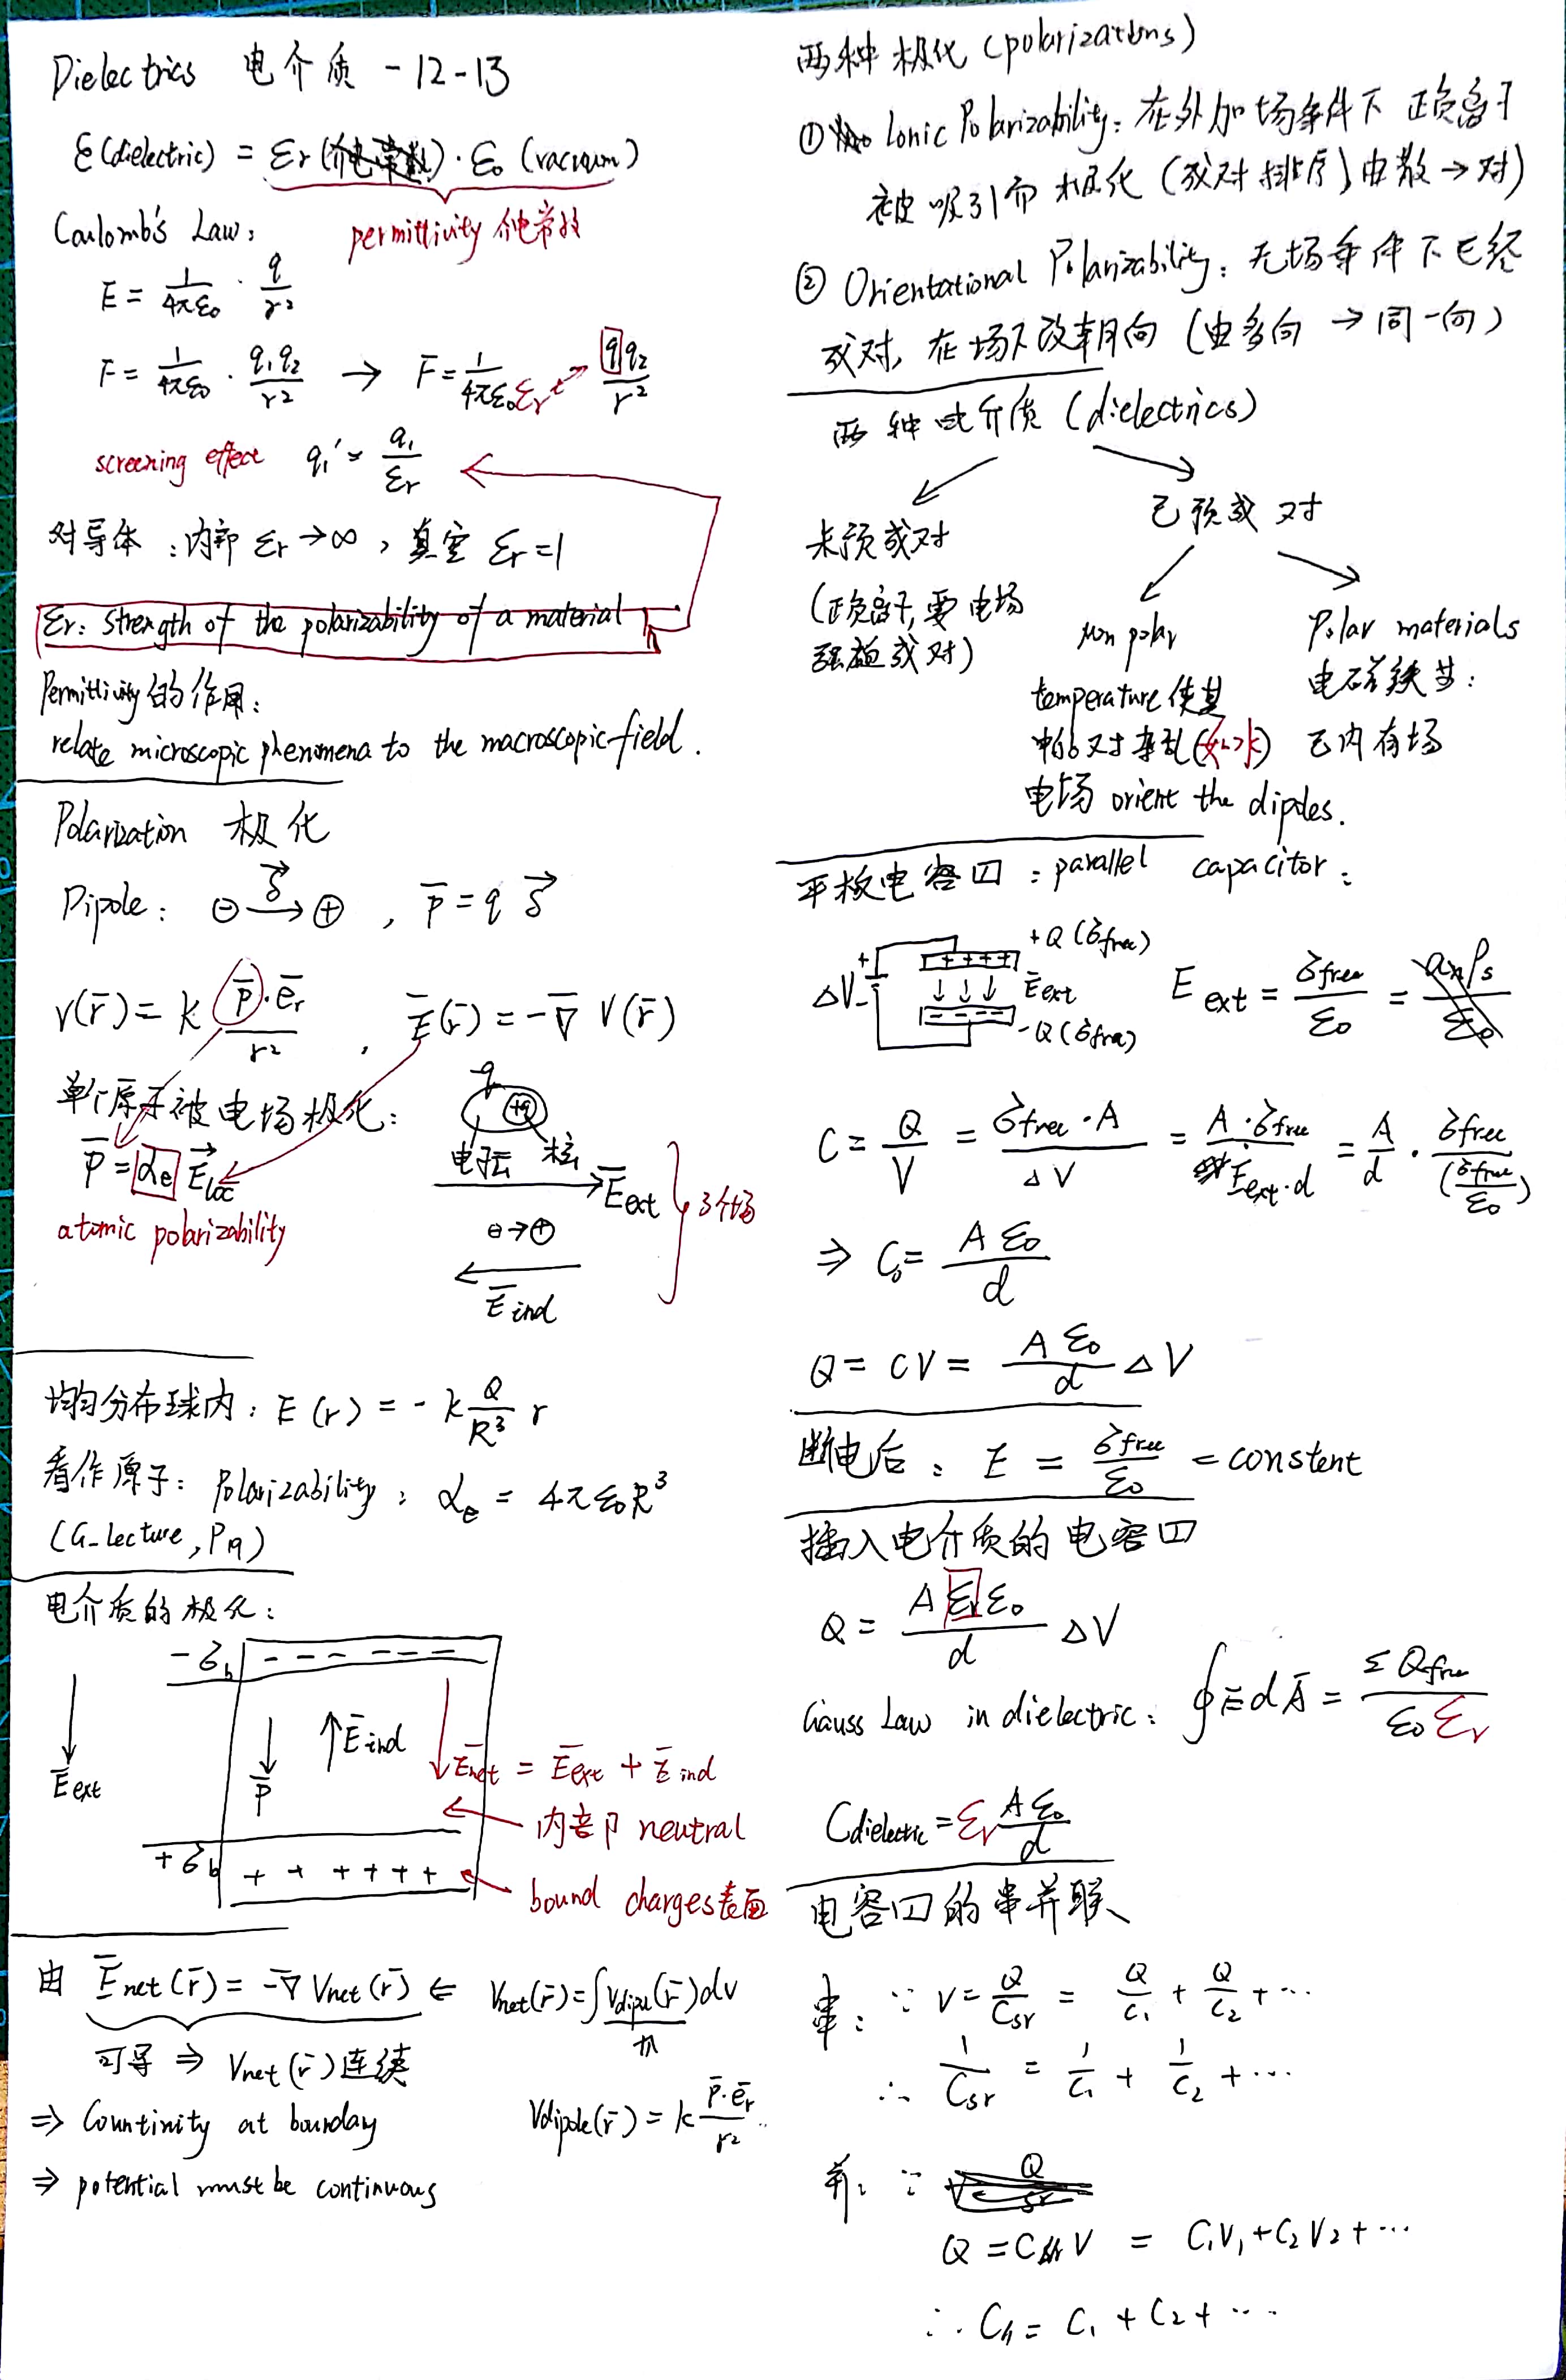 Dielectrics 电介质 -12-13
ε(dielectric) = εr (介电常数) · ε0 (vacuum)
permittivity 介电常数
Coulomb's Law:
E = 1/4πε0 · q/r²
F = 1/4πε0 · q1q2/r² → F = 1/4πε0εr q1q2/r²
screening effect q1' = q1/εr
对导体:内部 εr→∞,真空 εr=1
εr: strength of the polarizability of a material
Permittivity的作用:
relate microscopic phenomena to the macroscopic field.
Polarization 极化
Dipole: ⊖ →δ ⊕ , p̄ = q δ⃗
V(r̄) = k p̄·ēr/r² , Ē(r̄) = -∇̄ V(r̄)
单个原子被电场极化:
-q +q
电子云 核
p̄ = αe E⃗loc
atomic polarizability
Ēext
⊖→⊕
Ēind
3个场
均匀分布球内:E(r) = -k Q/R³ r
看作原子:Polarizability: αe = 4πε0R³
(G-lecture, P19)
电介质的极化:
-δb - - - - - - -
Ēext
P̄
↑Ēind
Ēnet = Ēext + Ēind
内部 neutral
+δb + + + + + +
bound charges表面
由 Ēnet(r̄) = -∇̄ Vnet(r̄) ⇐ Vnet(r̄) = ∫Vdipole(r̄)dv
可导 ⇒ Vnet(r̄)连续
⇒ Countinity at bounday
Vdipole(r̄) = k p̄·ēr/r²
⇒ potential must be continuous
两种极化 (polarizations)
① Ionic Polarizability: 在外加场条件下 正负离子
被吸引而极化 (成对排序) 由散→对)
② Orientational Polarizability: 无场条件下已经
成对, 在场下改朝向 (由多向 → 同一向)
两种电介质 (dielectrics)
未预成对
(正负离子, 要电场
强迫成对)
已预成对
Non polar
temperature使其
中的对杂乱(如水)
电场 orient the dipoles.
Polar materials
电磁铁等:
已内有场
平板电容口:parallel capacitor:
ΔV + -
+Q (δfree)
+ + + +
Ēext
- - - -
-Q (δfree)
Eext = δfree/ε0 =
C = Q/V = δfree·A/ΔV = A·δfree/Eext·d = A/d · δfree/(δfree/ε0)
⇒ C0 = Aε0/d
Q = CV = Aε0/d ΔV
断电后: E = δfree/ε0 = constent
插入电介质的电容口
Q = Aεrε0/d ΔV
Gauss Law in dielectric: ∮ĒdĀ = ΣQfree/ε0εr
Cdielectric = εr Aε0/d
电容口的串并联
串: ∵ V = Q/Csr = Q/C1 + Q/C2 + ···
∴ 1/Csr = 1/C1 + 1/C2 + ···
并: ∵
Q = C// V = C1V1 + C2V2 + ···
∴ C// = C1 + C2 + ···